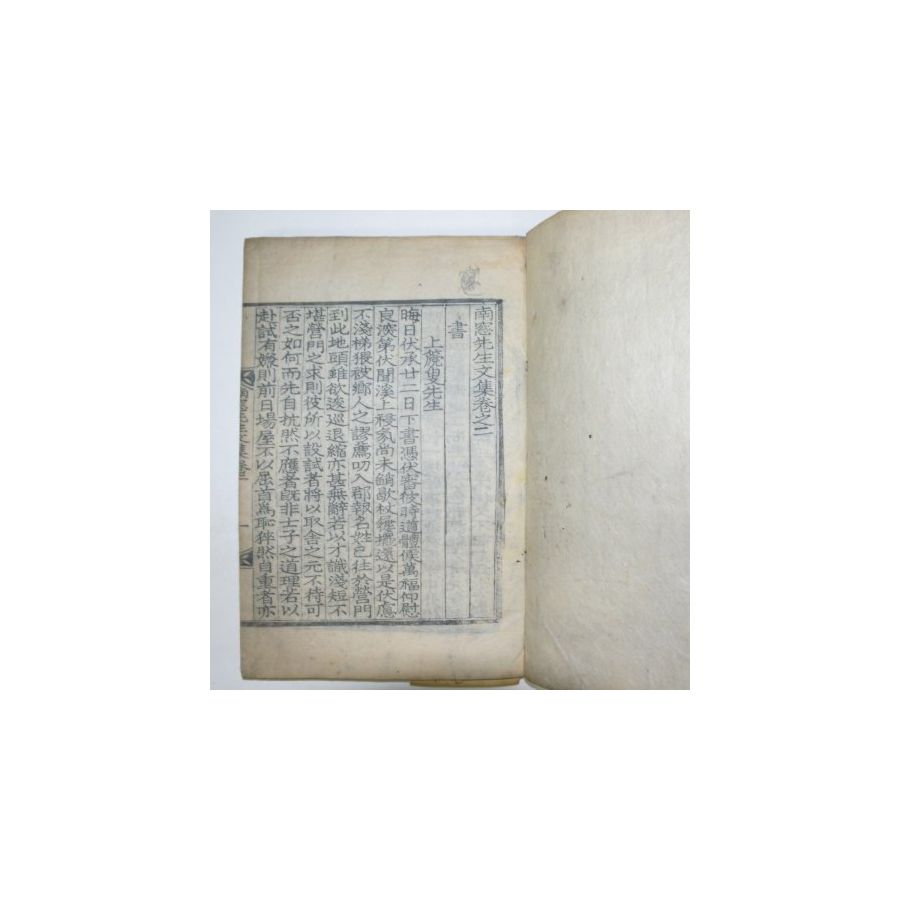 南窓先生文集卷之二
書
上篪叟先生
晦日伏承廿二日下書憑伏審彼時道體候萬福仰慰
良深第伏聞溪上祲氛尚未銷歇杖屨還以是伏慮
不淺梯猥被鄉人之謬薦叨入郡報名姓已往於營門
到此地頭雖欲逡巡退縮亦甚無辭若以才識淺短不
堪營門之求則彼所以設試者將以取舍之元不待可
否之如何而先自抗然不應者旣非士子之道理若以
赴試有嫌則前日場屋不以屈首爲恥猝然自重者亦